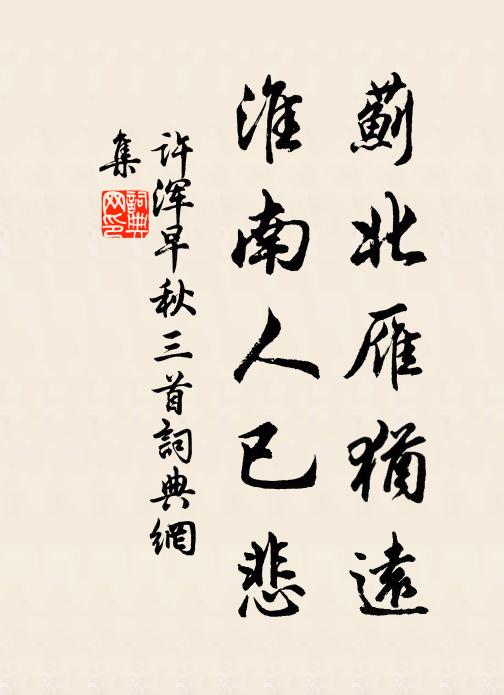 薊北雁猶遠
淮南人已悲
许渾早秋三首詞典網
集
詞典網印